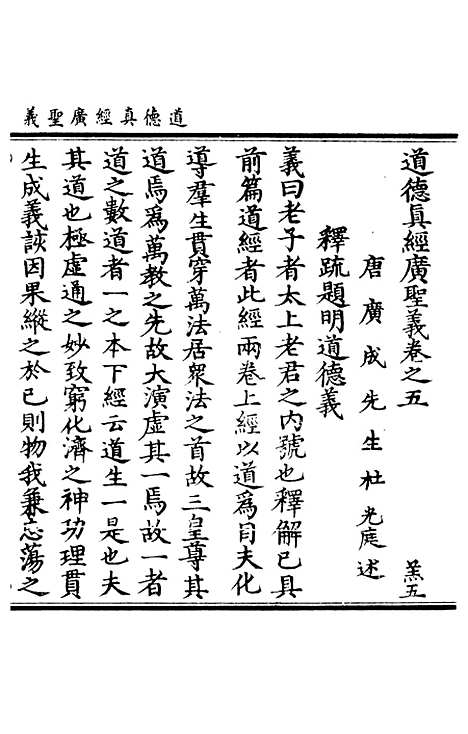 道德真經廣聖義
道德眞經廣聖義卷之五 羔五
唐廣成先生杜光庭述
釋疏題明道德義
義曰老子者太上老君之内號也釋解已具
前篇道經者此經兩卷上經以道爲目夫化
導羣生貫穿萬法居衆法之首故三皇尊其
道焉爲萬教之先故大演虚其一焉故一者
道之數道者一之本下經云道生一是也夫
其道也極虚通之妙致窮化濟之神功理貫
生成義該因果縱之於已則物我兼忘蕩之